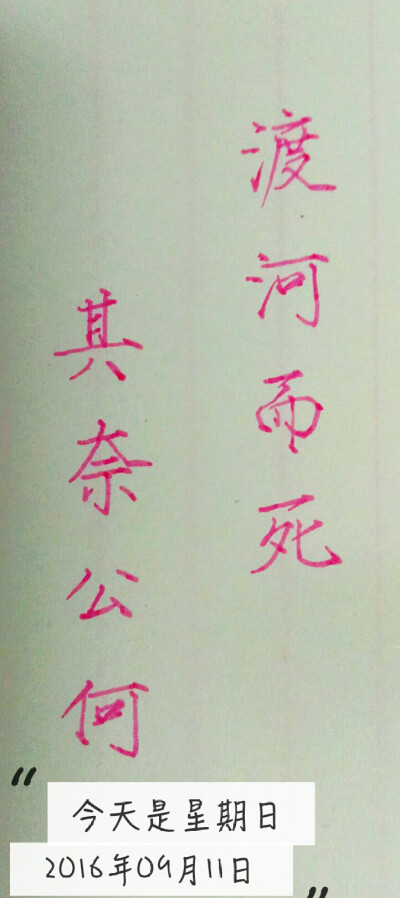 渡河而死
其奈公何
今天是星期日
2016年09月11日